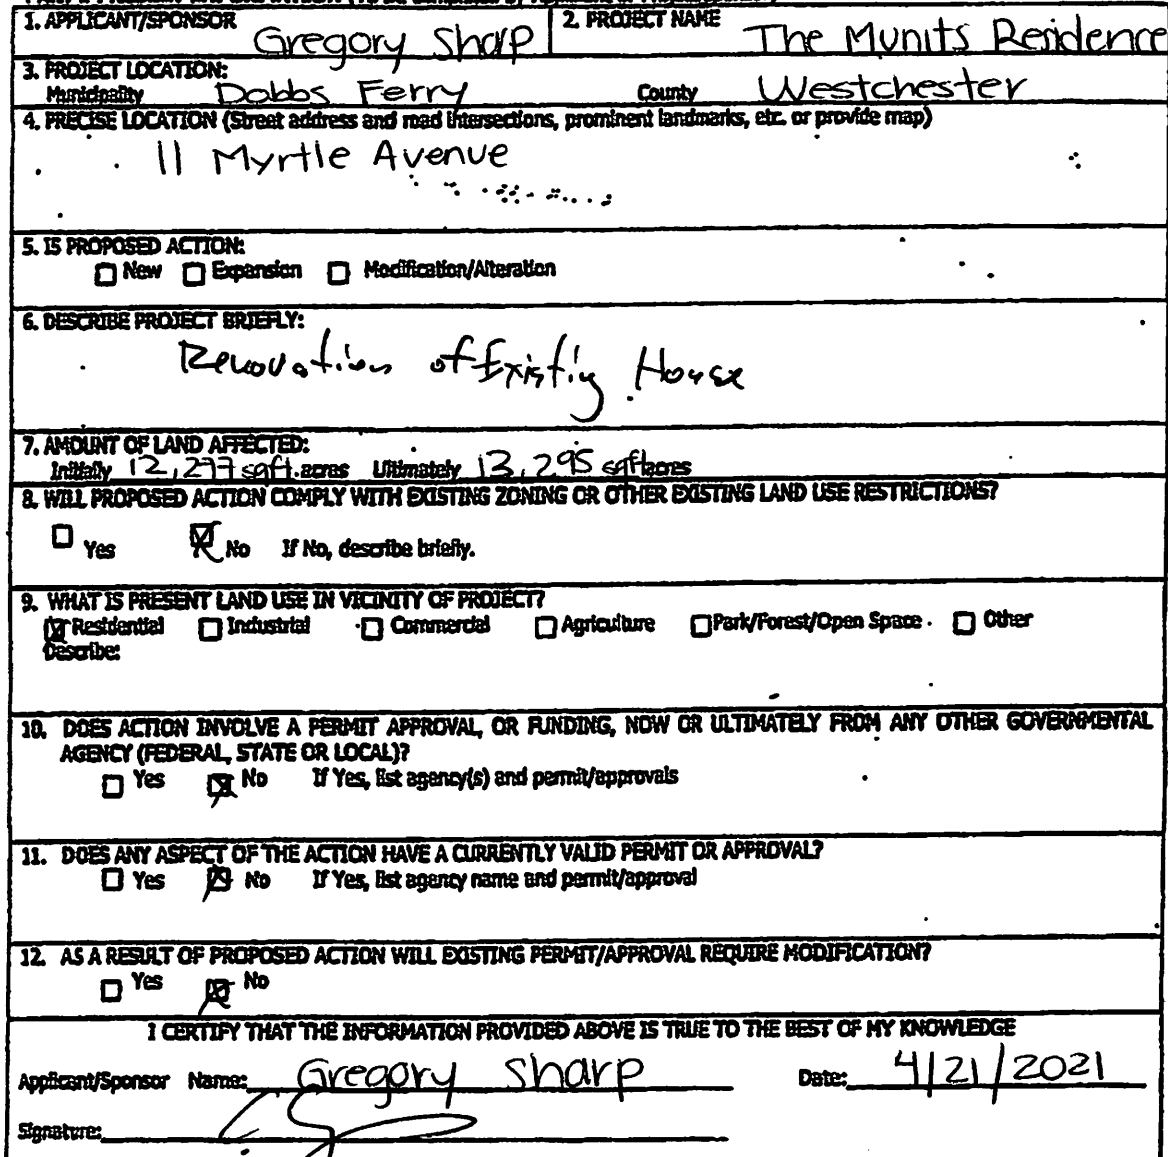 1. APPLICANT/SPONSOR Gregory Sharp 2. PROJECT NAME The Munits Residence
3. PROJECT LOCATION:
Municipality Dobbs Ferry County Westchester
4. PRECISE LOCATION (Street address and road intersections, prominent landmarks, etc. or provide map)
11 Myrtle Avenue
5. IS PROPOSED ACTION:
☐ New ☐ Expansion ☐ Modification/Alteration
6. DESCRIBE PROJECT BRIEFLY:
Renovation of Existing House
7. AMOUNT OF LAND AFFECTED:
Initially 12,277 sqft. acres Ultimately 13,295 sqft acres
8. WILL PROPOSED ACTION COMPLY WITH EXISTING ZONING OR OTHER EXISTING LAND USE RESTRICTIONS?
☐ Yes ☒ No If No, describe briefly.
9. WHAT IS PRESENT LAND USE IN VICINITY OF PROJECT?
☒ Residential ☐ Industrial ☐ Commercial ☐ Agriculture ☐ Park/Forest/Open Space ☐ Other
Describe:
10. DOES ACTION INVOLVE A PERMIT APPROVAL, OR FUNDING, NOW OR ULTIMATELY FROM ANY OTHER GOVERNMENTAL
AGENCY (FEDERAL, STATE OR LOCAL)?
☐ Yes ☒ No If Yes, list agency(s) and permit/approvals
11. DOES ANY ASPECT OF THE ACTION HAVE A CURRENTLY VALID PERMIT OR APPROVAL?
☐ Yes ☒ No If Yes, list agency name and permit/approval
12. AS A RESULT OF PROPOSED ACTION WILL EXISTING PERMIT/APPROVAL REQUIRE MODIFICATION?
☐ Yes ☒ No
I CERTIFY THAT THE INFORMATION PROVIDED ABOVE IS TRUE TO THE BEST OF MY KNOWLEDGE
Applicant/Sponsor Name: Gregory Sharp Date: 4/21/2021
Signature: